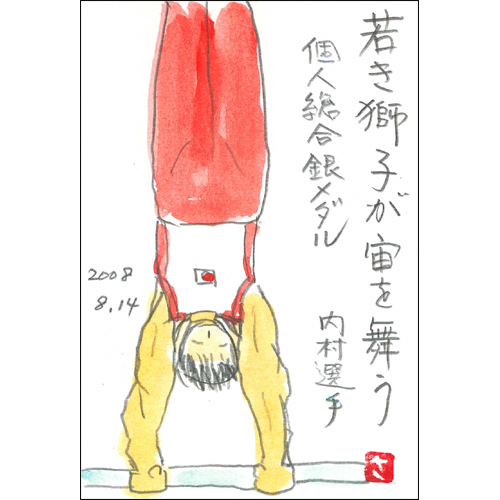 若き獅子が宙を舞う
個人総合銀メダル
内村選手
2008
8.14